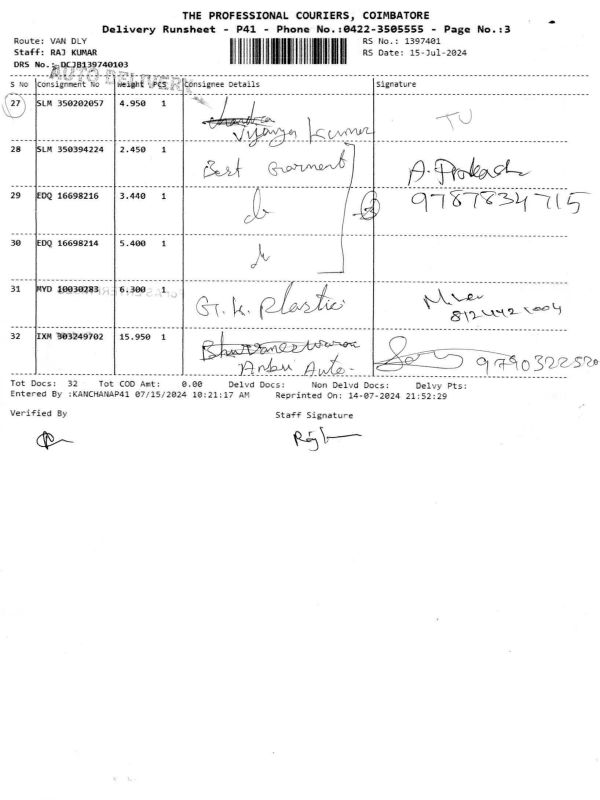 THE PROFESSIONAL COURIERS, COIMBATORE
Delivery Runsheet - P41 - Phone No.:0422-3505555 - Page No.:3
Route: VAN DLY RS No.: 1397401
Staff: RAJ KUMAR RS Date: 15-Jul-2024
DRS No.: DCJB139740103
AUTO DELIVERY
S No Consignment No Weight PCS Consignee Details Signature
27 SLM 350202057 4.950 1 Vijaya Kumar TU
28 SLM 350394224 2.450 1 Best Garment A. Prakash
29 EDQ 16698216 3.440 1 3 9787834715
30 EDQ 16698214 5.400 1
31 MYD 10030283 6.300 1 G.K. Plastic
32 IXM 303249702 15.950 1 Bhuvaneswaran
Anbu Auto 9790322520
Tot Docs: 32 Tot COD Amt: 0.00 Delvd Docs: Non Delvd Docs: Delvy Pts:
Entered By :KANCHANAP41 07/15/2024 10:21:17 AM Reprinted On: 14-07-2024 21:52:29
Verified By Staff Signature